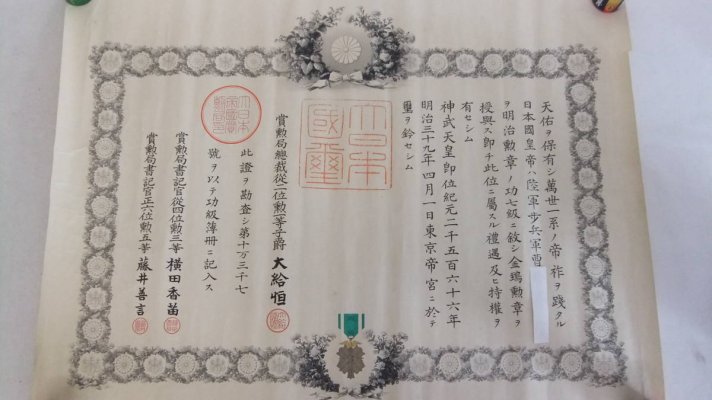 天佑ヲ保有シ萬世一系ノ帝祚ヲ踐タル
日本國皇帝ハ陸軍歩兵軍曹
ヲ明治勲章ノ功七級ニ敘シ金鵄勲章ヲ
授與ス即チ此位ニ屬スル禮遇及ヒ特權ヲ
有セシム
神武天皇即位紀元二千五百六十六年
明治三十九年四月一日東京帝宮ニ於テ
璽ヲ鈐セシム
大日本國璽
賞勲局總裁從二位勲一等子爵大給恒
此證ヲ勘査シ第十万三千七
號ヲ以テ功級簿冊ニ記入ス
賞勲局書記官從四位勲三等横田香苗
賞勲局書記官正六位勲五等藤井善言